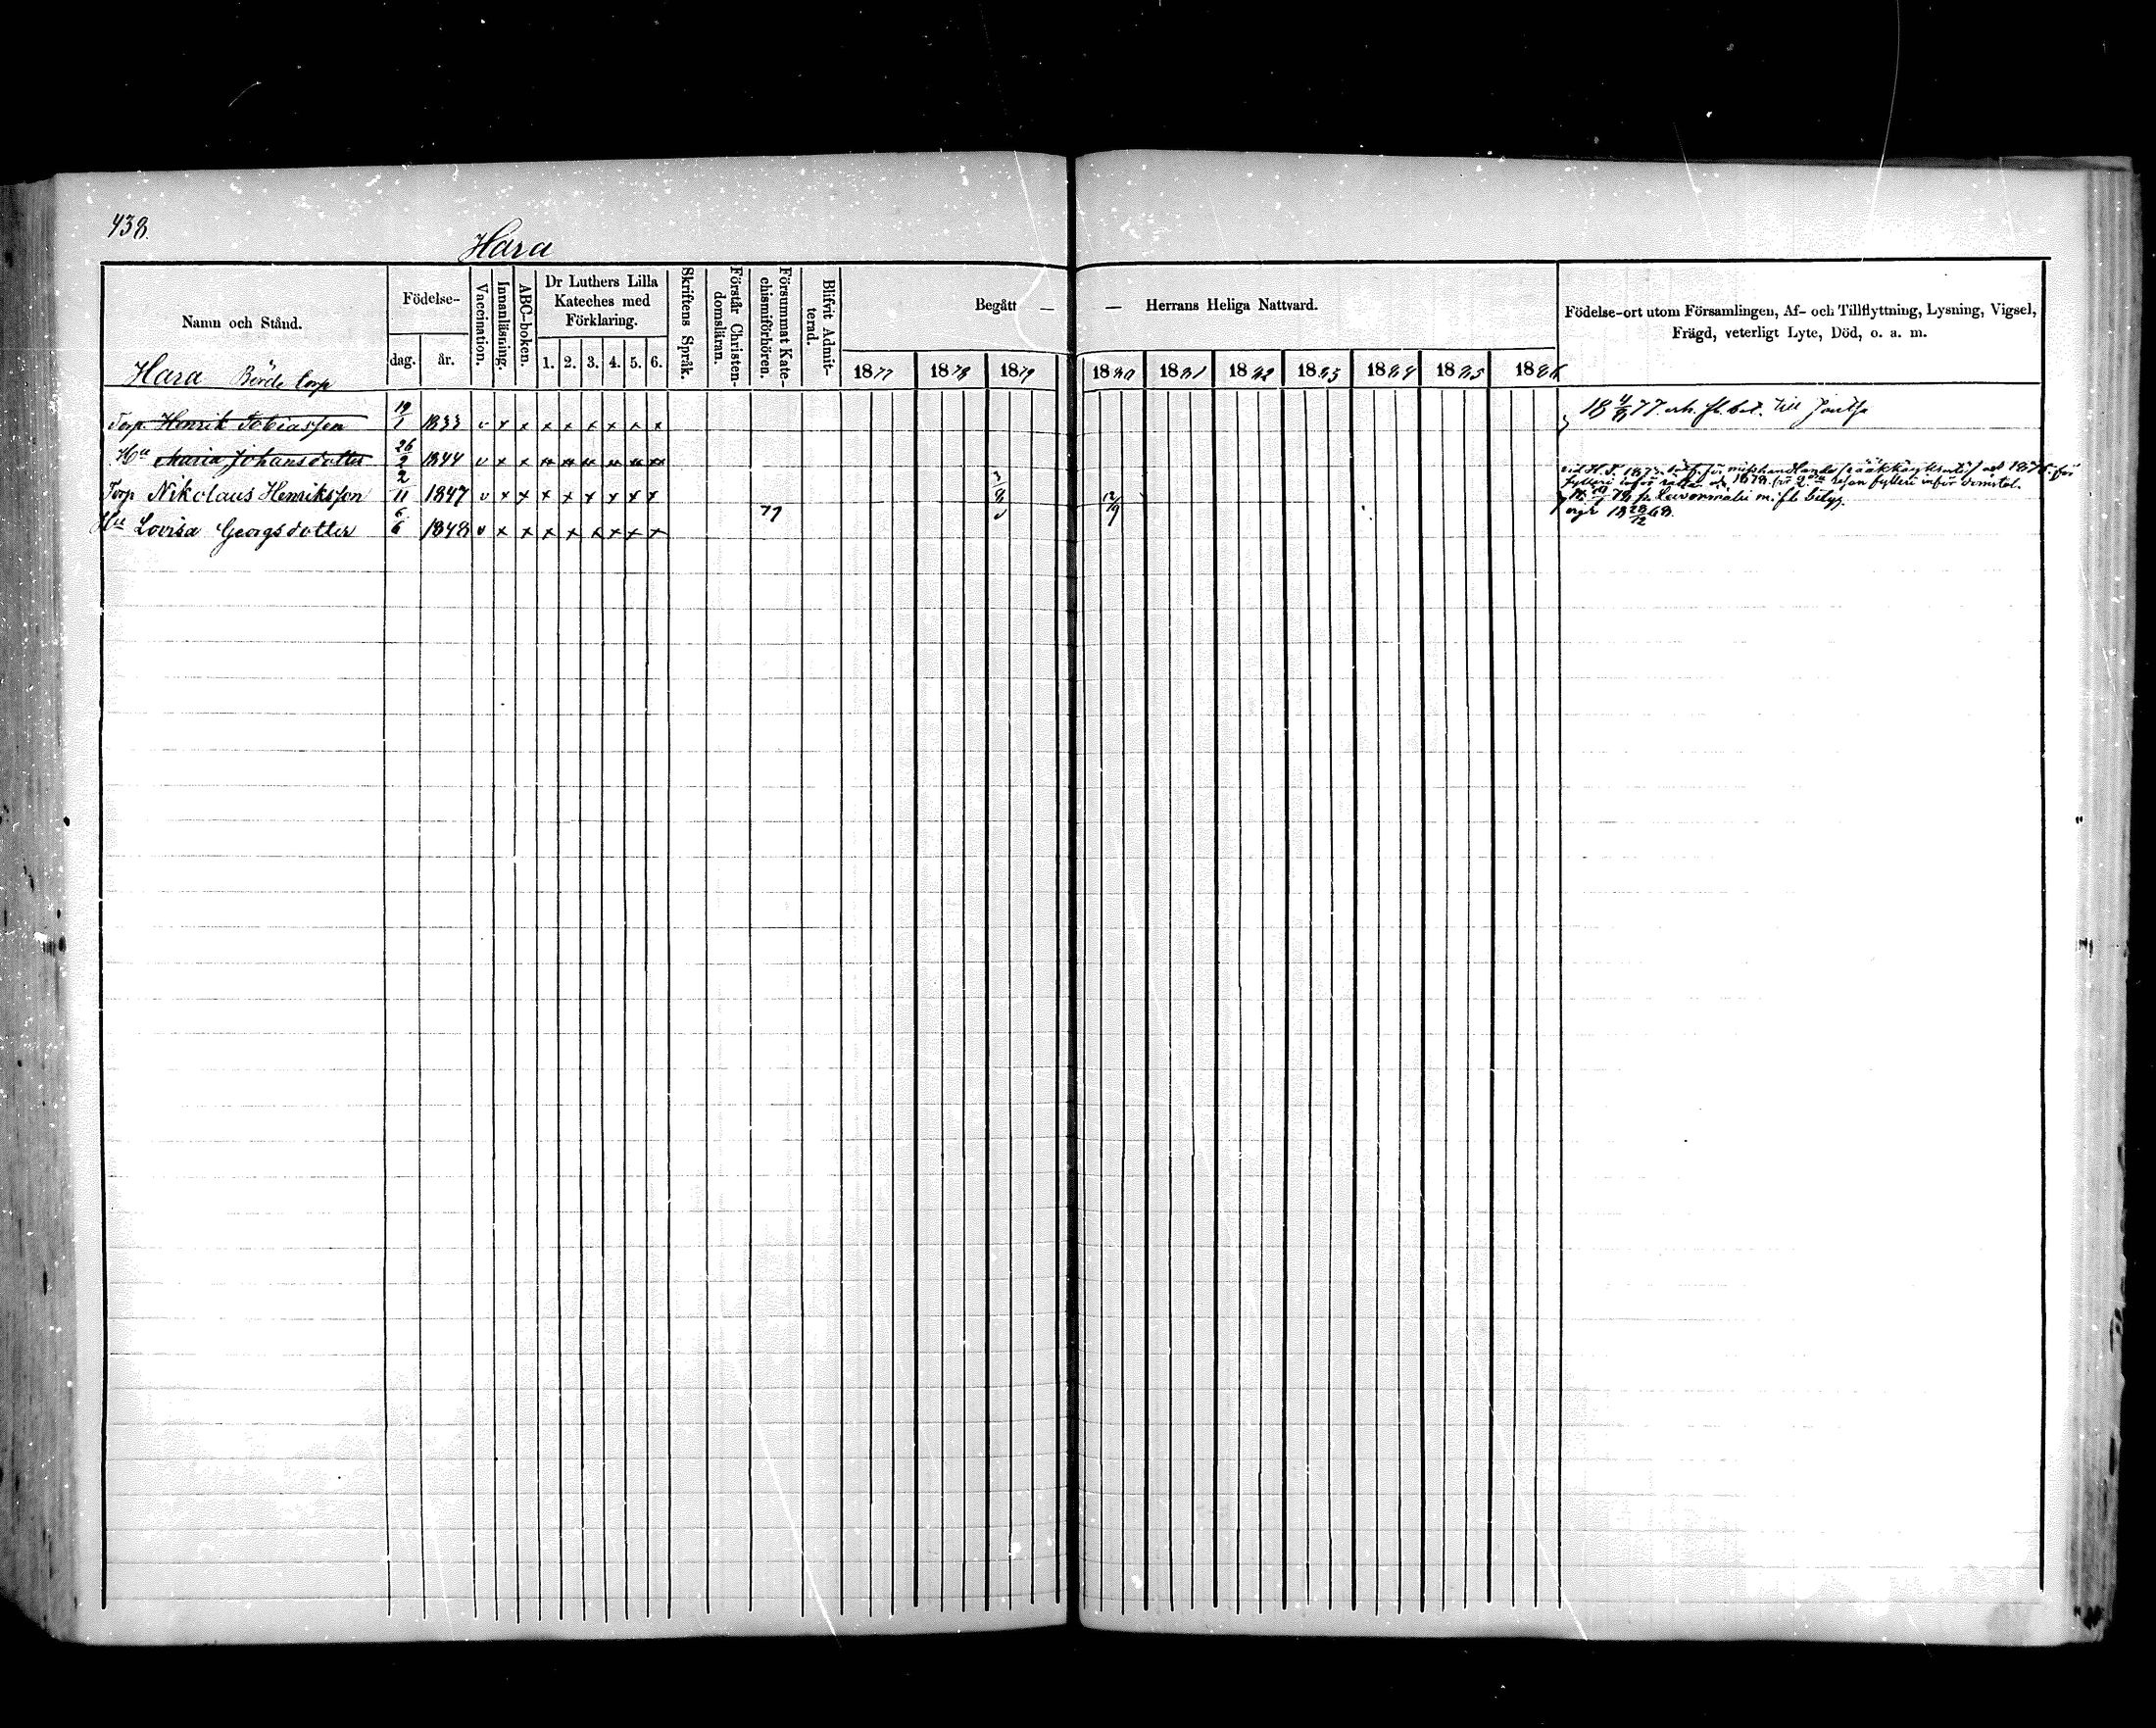 438.
Hara
Namn och Stånd.
Födelse-
dag. år.
Vaccination.
Innanläsning.
ABC-boken.
Dr Luthers Lilla
Kateches med
Förklaring.
1. 2. 3. 4. 5. 6.
Skriftens Språk.
Förstår Christen-
domsläran.
Försummat Kate-
chismiförhören.
Blifvit Admit-
terad.
Begått — — Herrans Heliga Nattvard.
1877 1878 1879 1880 1881 1882 1883 1884 1885 1886
Födelse-ort utom Församlingen, Af- och Tillflyttning, Lysning, Vigsel,
Frägd, veterligt Lyte, Död, o. a. m.
Hara torp
Torp. Henrik Tobiasson 19/1 1833 v x x x x x x x x 77 till
Hu Maria Johansdotter 26/2 1844 v x x
Torp Nikolaus Henriksson 2/11 1847 v x x x x x x x x
Hu Lovisa Georgsdotter 6/6 1848 v x x x x x x x x 77 18 28/12 68.